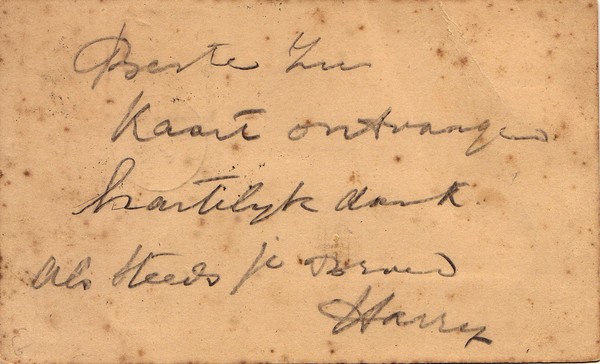 Beste Zus
Kaart ontvangen
hartelyk dank
als steeds je Broer
Harry